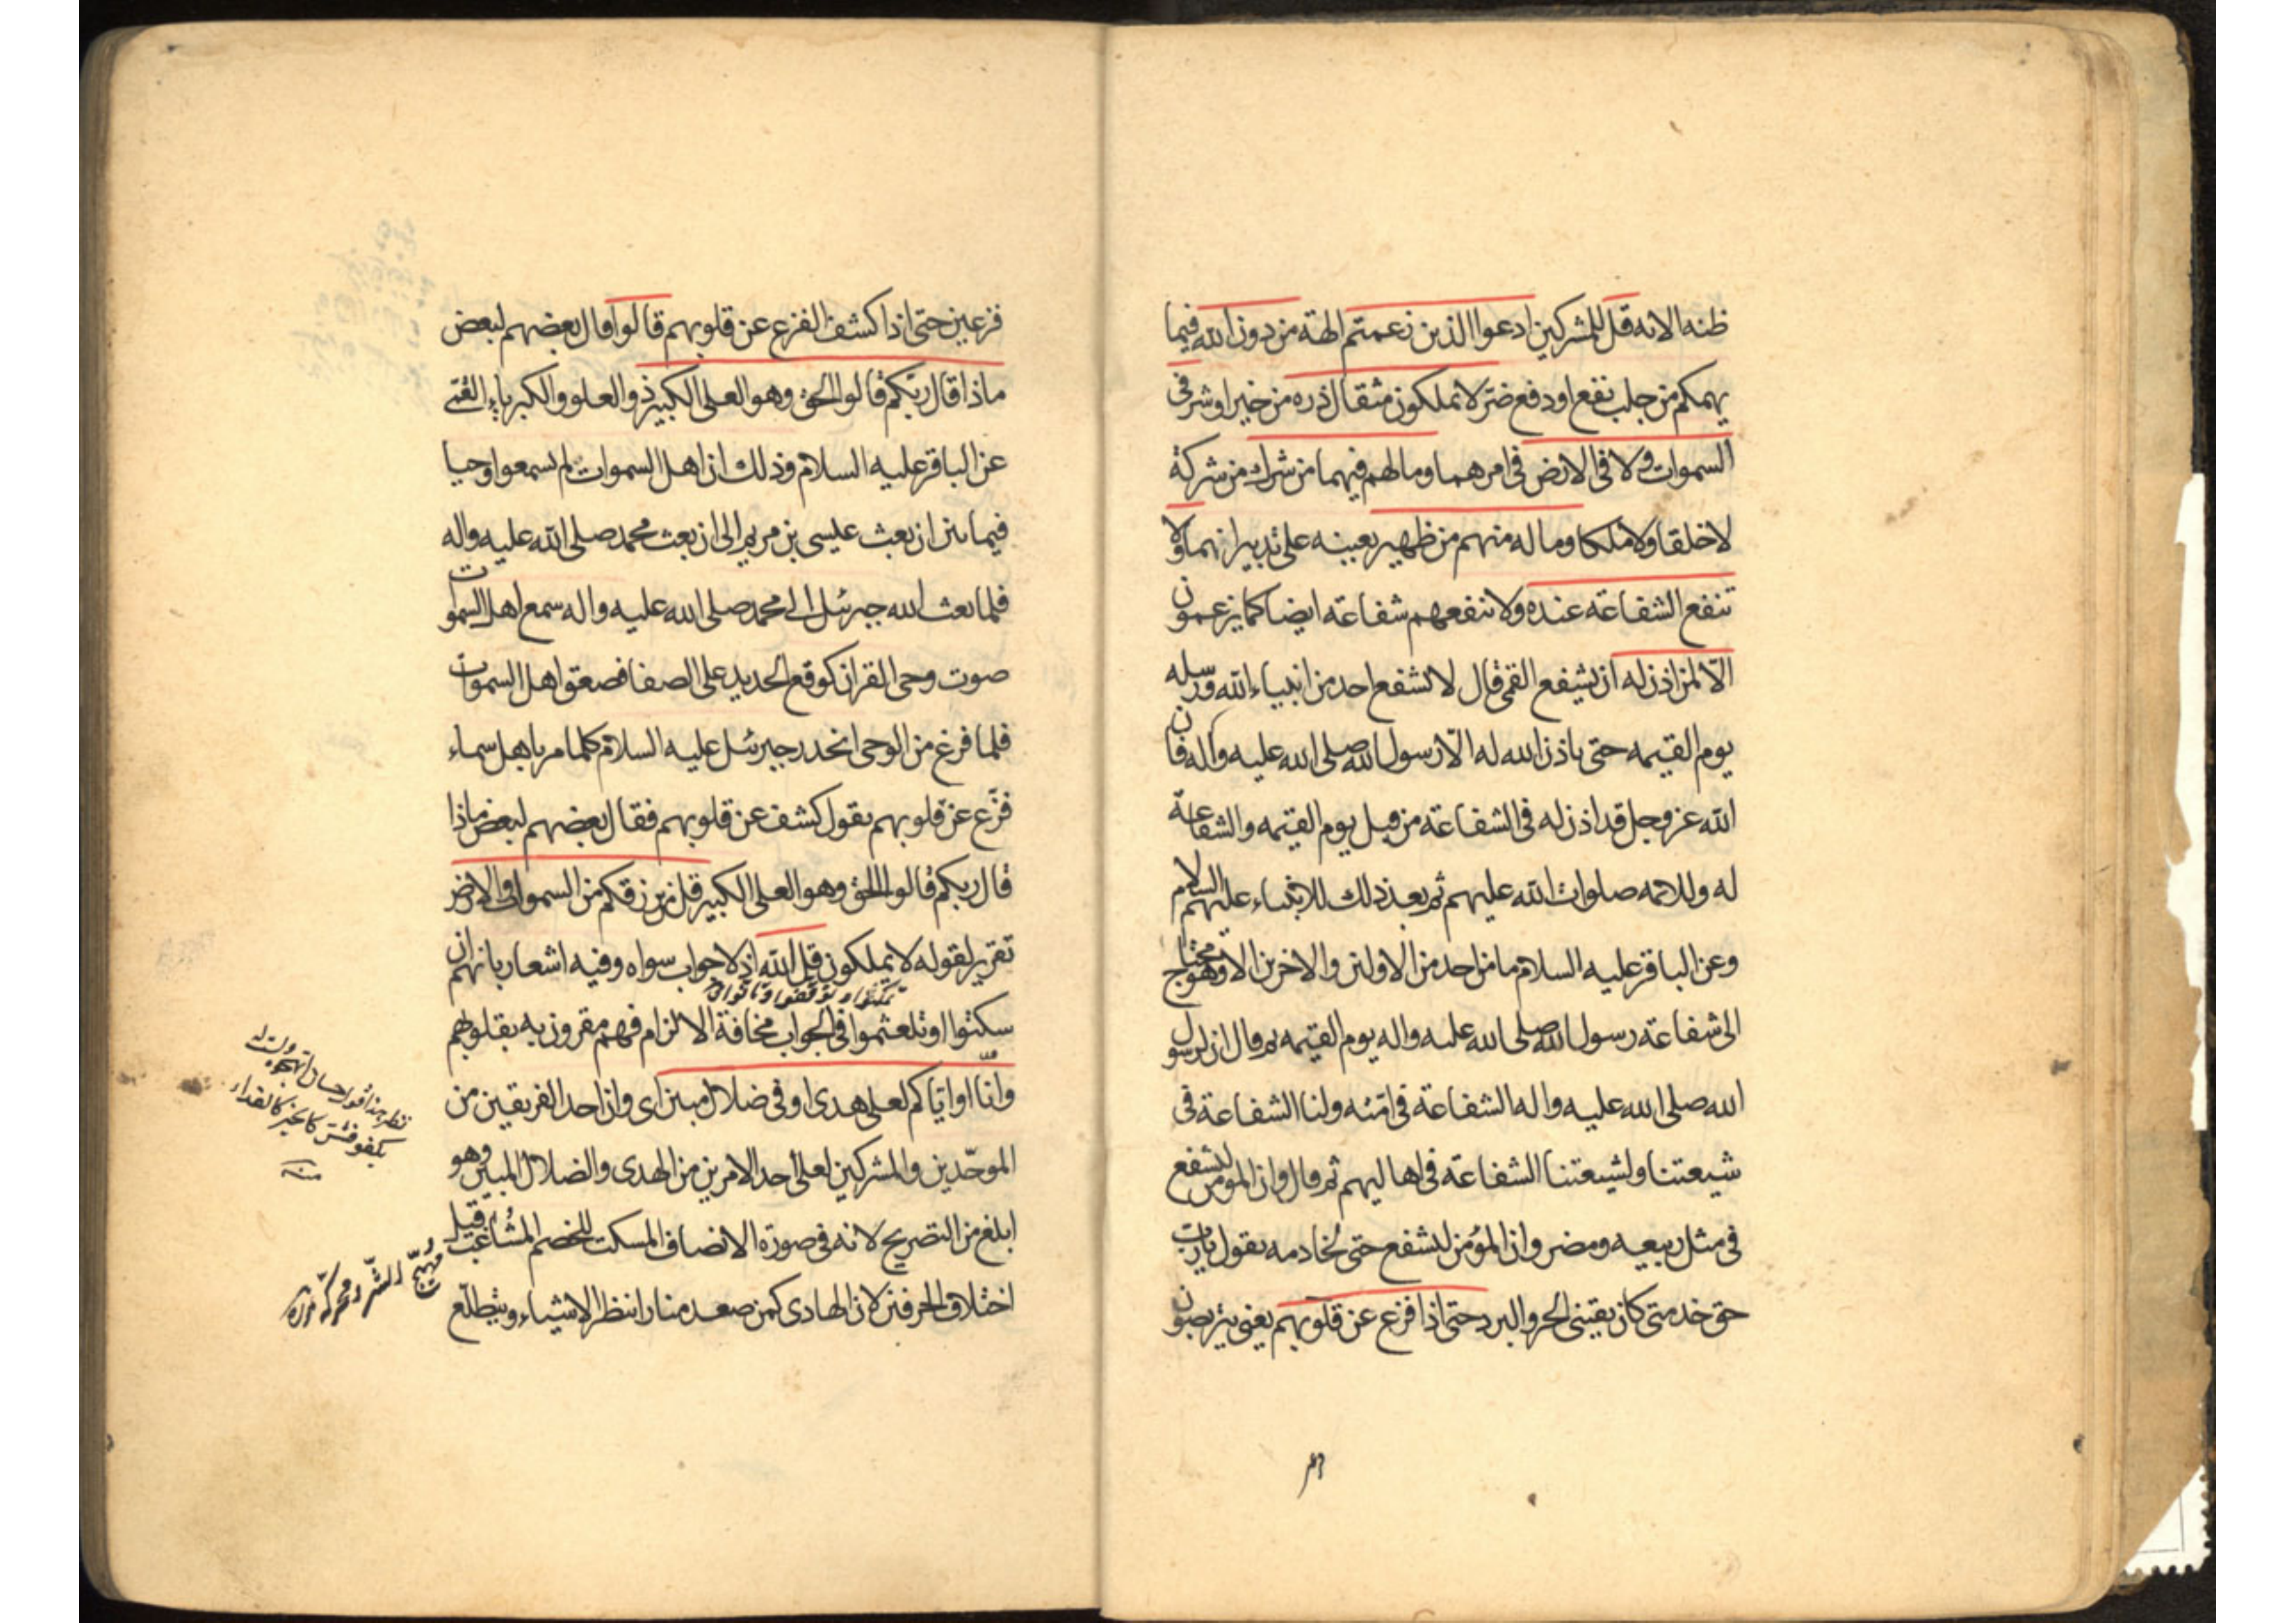 ظنه الا نه قل للمشركين ادعوا الذين زعمتم الهة من دون الله فيما
يهمكم من جلب نفع او دفع ضر لا يملكون مثقال ذره من خير او شر فى
السموات ولا فى الارض فى امرهما وما لهم فيهما من شرك من شركة
لا خلقا ولا ملكا وما له منهم من ظهير يعينه على تدبيرانهما ولا
تنفع الشفاعة عنده ولا تنفعهم شفاعة ايضا كما يزعمون
الا لمن اذن له ان يشفع القمى قال لا تشفع احد من انبياء الله ورسله
يوم القيمه حتى ياذن الله له الا رسول الله صلى الله عليه وآله فان
الله عز وجل قد اذن له فى الشفاعة من قبل يوم القيمه والشفاعة
له وللائمه صلوات الله عليهم ثم بعد ذلك للانبياء عليهم السلام
وعن الباقر عليه السلام ما من احد من الاولين والاخرين الا وهو محتاج
الى شفاعة رسول الله صلى الله عليه واله يوم القيمه ثم قال ان لرسول
الله صلى الله عليه واله الشفاعة فى امته ولنا الشفاعة فى
شيعتنا ولشيعتنا الشفاعة فى اهاليهم ثم قال وان المومن ليشفع
فى مثل ربيعه ومضر وان المؤمن ليشفع حتى لخادمه يقول يا رب
حق خدمتى كان يقينى الحر والبرد حتى اذا فزع عن قلوبهم يعنى يتربصون
فزعين حتى اذا كشف الفزع عن قلوبهم قالوا قال بعضهم لبعض
ماذا قال ربكم قالوا الحق وهو العلى الكبير ذو العلو والكبرياء القمى
عن الباقر عليه السلام وذلك ان اهل السموات لم يسمعوا وحيا
فيما بين ان بعث عيسى بن مريم الى ان بعث محمد صلى الله عليه واله
فلما بعث الله جبرئيل الى محمد صلى الله عليه واله سمع اهل السموات
صوت وحى القران كوقع الحديد على الصفا فصعق اهل السموات
فلما فرغ من الوحى انحدر جبرئيل عليه السلام كلما مر باهل سماء
فزع عن قلوبهم يقول كشف عن قلوبهم فقال بعضهم لبعض ماذا
قال ربكم قالوا الحق وهو العلى الكبير قل من يرزقكم من السموات والارض
تقرير لقوله لا يملكون قل الله اذ لا جواب سواه وفيه اشعار بانهم ان
سكتوا او تلعثموا فى الجواب مخافة الالزام فهم مقرون به بقلوبهم
وانا او اياكم لعلى هدى او فى ضلال مبين اى وان احد الفريقين من
الموحدين والمشركين لعلى احد الامرين من الهدى والضلال المبين وهو
ابلغ من التصريح لانه فى صورة الانصاف المسكت للخصم المشاغب قيل
اختلاف الحرفين لان الهادى كمن صعد منارا ينظر الاشياء ويتطلع
منه